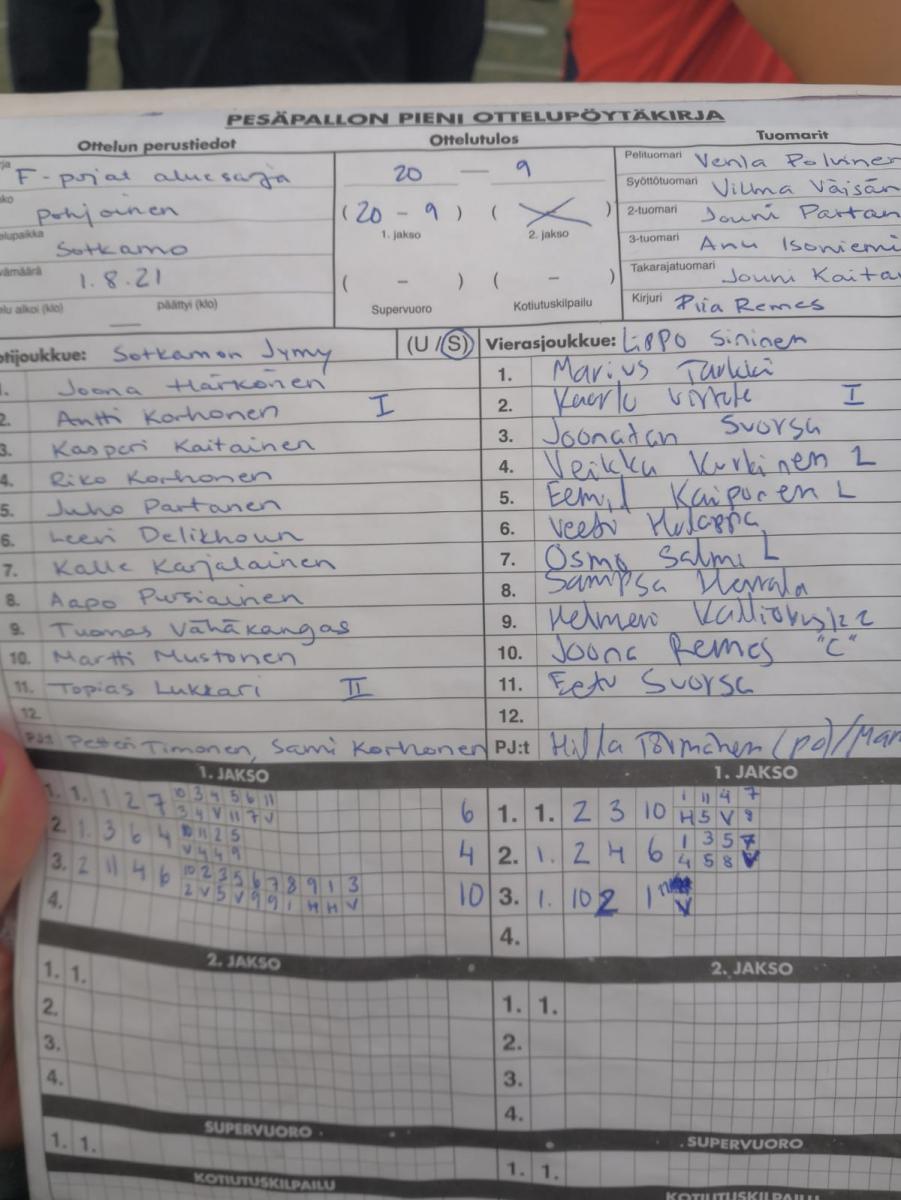 PESÄPALLON PIENI OTTELUPÖYTÄKIRJA
Ottelun perustiedot
F-pojat aluesarja
Pohjoinen
Sotkamo
1.8.21
päättyi (klo)
Ottelutulos
20 — 9
(20 - 9) ( )
1. jakso 2. jakso
( - ) ( - )
Supervuoro Kotiutuskilpailu
Tuomarit
Pelituomari Venla
Syöttötuomari Vilma
2-tuomari Jouni
3-tuomari Anu Isoniemi
Takarajatuomari Jouni
Kirjuri Piia Remes
Sotkamon Jymy (U / S)
Joona Härkönen
2. Antti Korhonen I
3. Kasperi Kaitainen
4. Riko Korhonen
5. Juho Partanen
6. Leevi Delikhoun
7. Kalle Karjalainen
8. Aapo Pursiainen
9. Tuomas Vähäkangas
10. Martti Mustonen
11. Topias Lukkari II
12.
PJ:t Petteri Timonen, Sami Korhonen
Vierasjoukkue: Lippo Sininen
1. Marius Tarkki
2. I
3. Joonatan Suorsa
4. Veikka Kurkinen L
5. Eemil L
6. Veeti
7. Osmo Salmi L
8. Sampsa
9.
10. Joona Remes "C"
11. Eetu Suorsa
12.
PJ:t Hilla
1. JAKSO
1. 1. 1 2 7 10 3 4 5 6 11 6
3 4 V 11 7 V
2. 1. 3 6 4 10 11 2 5 4
V 4 4 9
3. 2 11 4 6 10 2 3 5 6 7 8 9 1 3 10
2 V 5 V 9 9 1 H H V
4.
1. JAKSO
1. 1. 2 3 10 1 11 4 7
H 5 V 8
2. 1. 2 4 6 1 3 5 7
4 5 8 V
3. 1. 10 2 1
V
4.
2. JAKSO
1. 1.
2.
3.
4.
2. JAKSO
1. 1.
2.
3.
4.
SUPERVUORO
1. 1.
SUPERVUORO
1. 1.
KOTIUTUSKILPAILU
KOTIUTUSKILPAILU